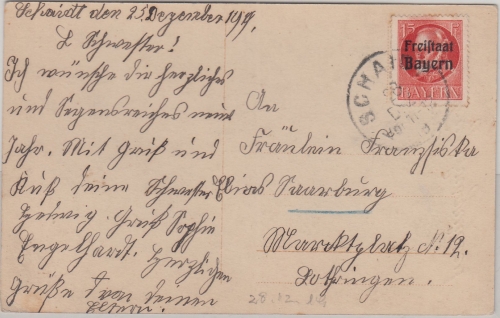 Schaidt den 25. Dezember 1919.
L Schwester!
Ich wünsche dir herzliches
und Segensreiches neues
Jahr. Mit Gruß und
Kuß deine Schwester
Hedwig. Gruß Sophie
Engelhardt. Herzlichen
Grüße von deinen
Eltern.
15 PF 15
Freistaat
Bayern
BAYERN
SCHAI
An
Fräulein Franziska
Elias Saarburg
Marcktplatz No. 12.
Lothringen.
28.12.